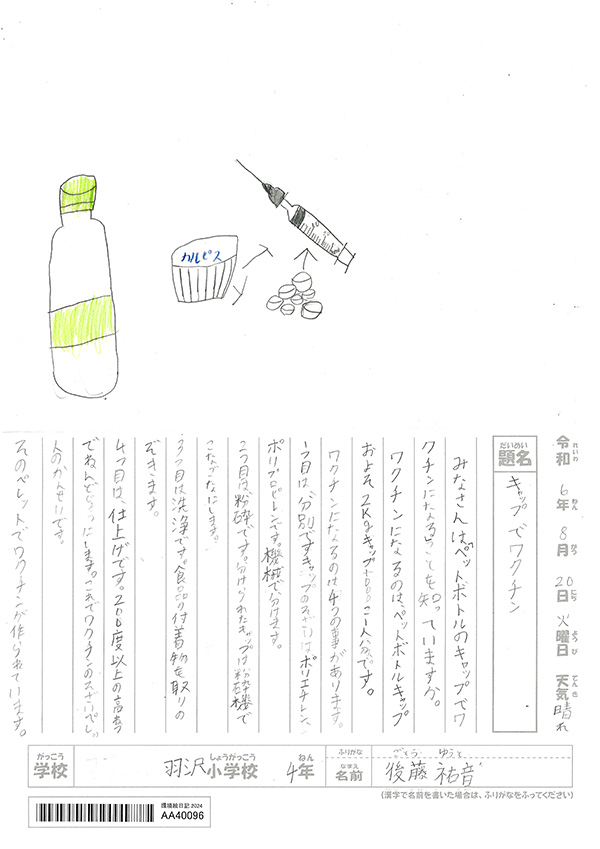 カルピス
令和 6年 8月 20日 火曜日 天気 晴れ
れいわ ねん がつ にち ようび てんき
だいめい
題名 キャップでワクチン
みなさんは、ペットボトルのキャップでワ
クチンになることを知っていますか。
ワクチンになるのは、ペットボトルキャップ
およそ2Kgキャップ 一人分です。
ワクチンになるのは4つの事があります。
1つ目は分別ですキャップのそざいはポリエチレン、
ポリプロピレンです。機械で分けます。
2つ目は粉砕です。分けられたキャップは粉砕機で
こなごなにします。
3つ目は洗浄です。食品の付着物を取りの
ぞきます。
4つ目は、仕上げです。200度以上の高あつ
でねんどじょうにします。これでワクチンのそざいペレ
のかんせいです。
そのペレットでワクチンが作られています。
がっこう しょうがっこう ねん
学校 羽沢小学校 4年
ふりがな ごとう ゆうと
なまえ
名前 後藤 祐音
(漢字で名前を書いた場合は、ふりがなをふってください)
環境絵日記2024
AA40096